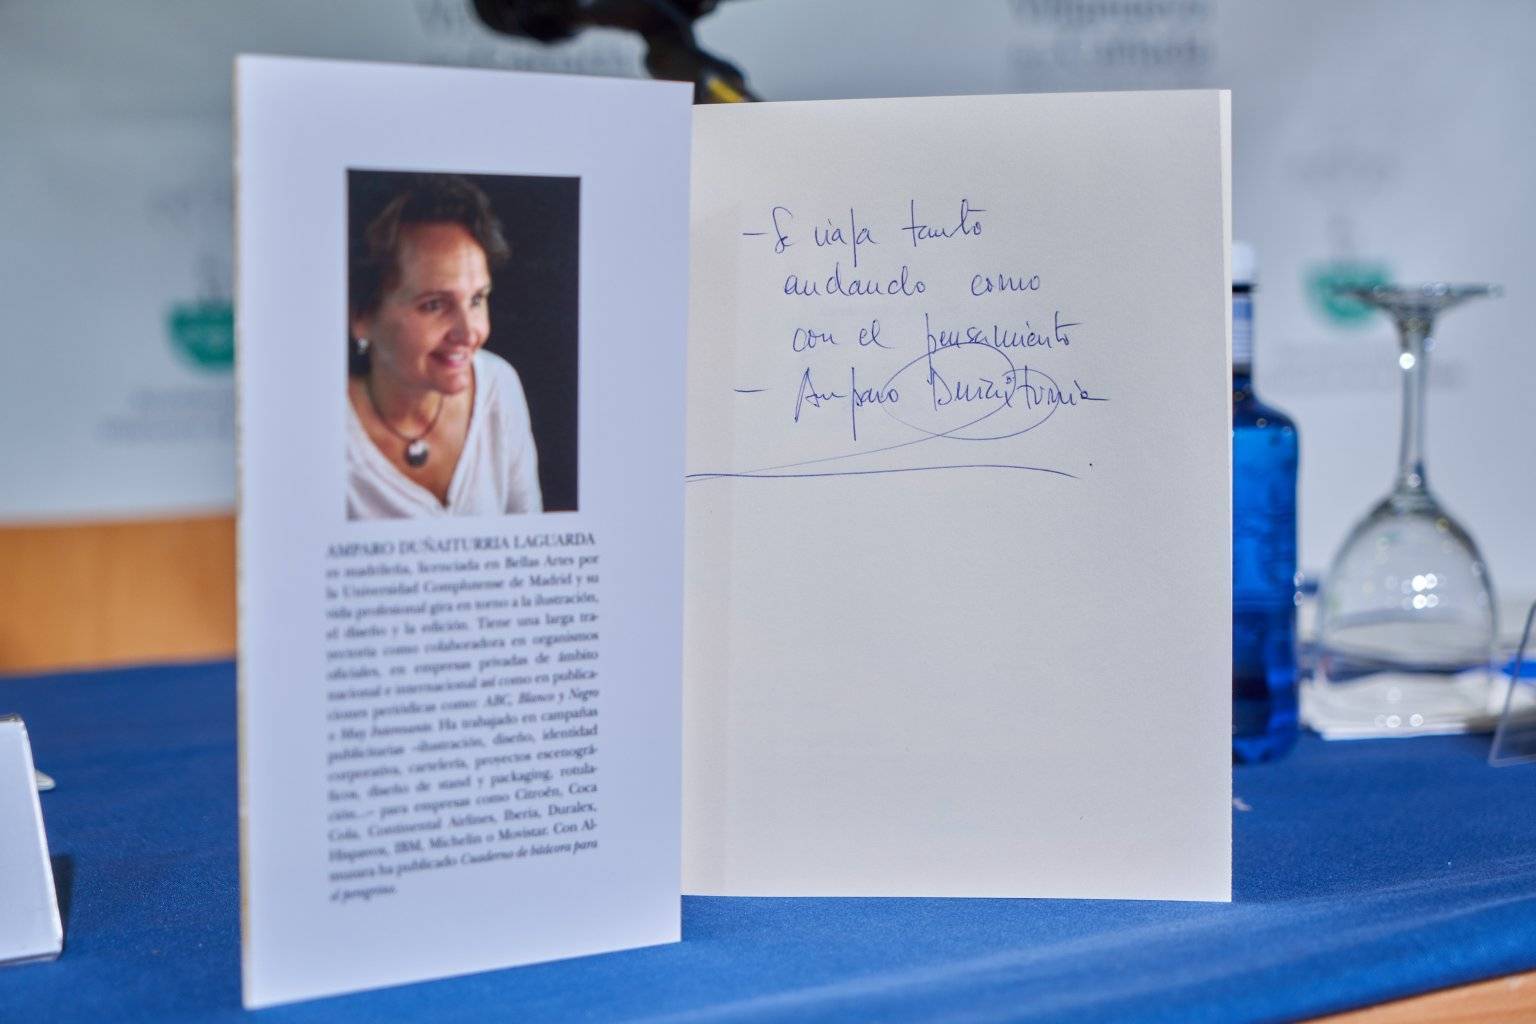 AMPARO DUÑAITURRIA LAGUARDA
es madrileña, licenciada en Bellas Artes por
la Universidad Complutense de Madrid y su
vida profesional gira en torno a la ilustración,
el diseño y la edición. Tiene una larga tra-
yectoria como colaboradora en organismos
oficiales, en empresas privadas de ámbito
nacional e internacional así como en publica-
ciones periódicas como: ABC, Blanco y Negro
o Muy Interesante. Ha trabajado en campañas
publicitarias –ilustración, diseño, identidad
corporativa, cartelería, proyectos escenográ-
ficos, diseño de stand y packaging, rotula-
ción...– para empresas como Citroën, Coca
Cola, Continental Airlines, Iberia, Duralex,
Hispavox, IBM, Michelin o Movistar. Con Al-
muzara ha publicado Cuaderno de bitácora para
el peregrino.
– Se viaja tanto
andando como
con el pensamiento
– Amparo Duñaiturria